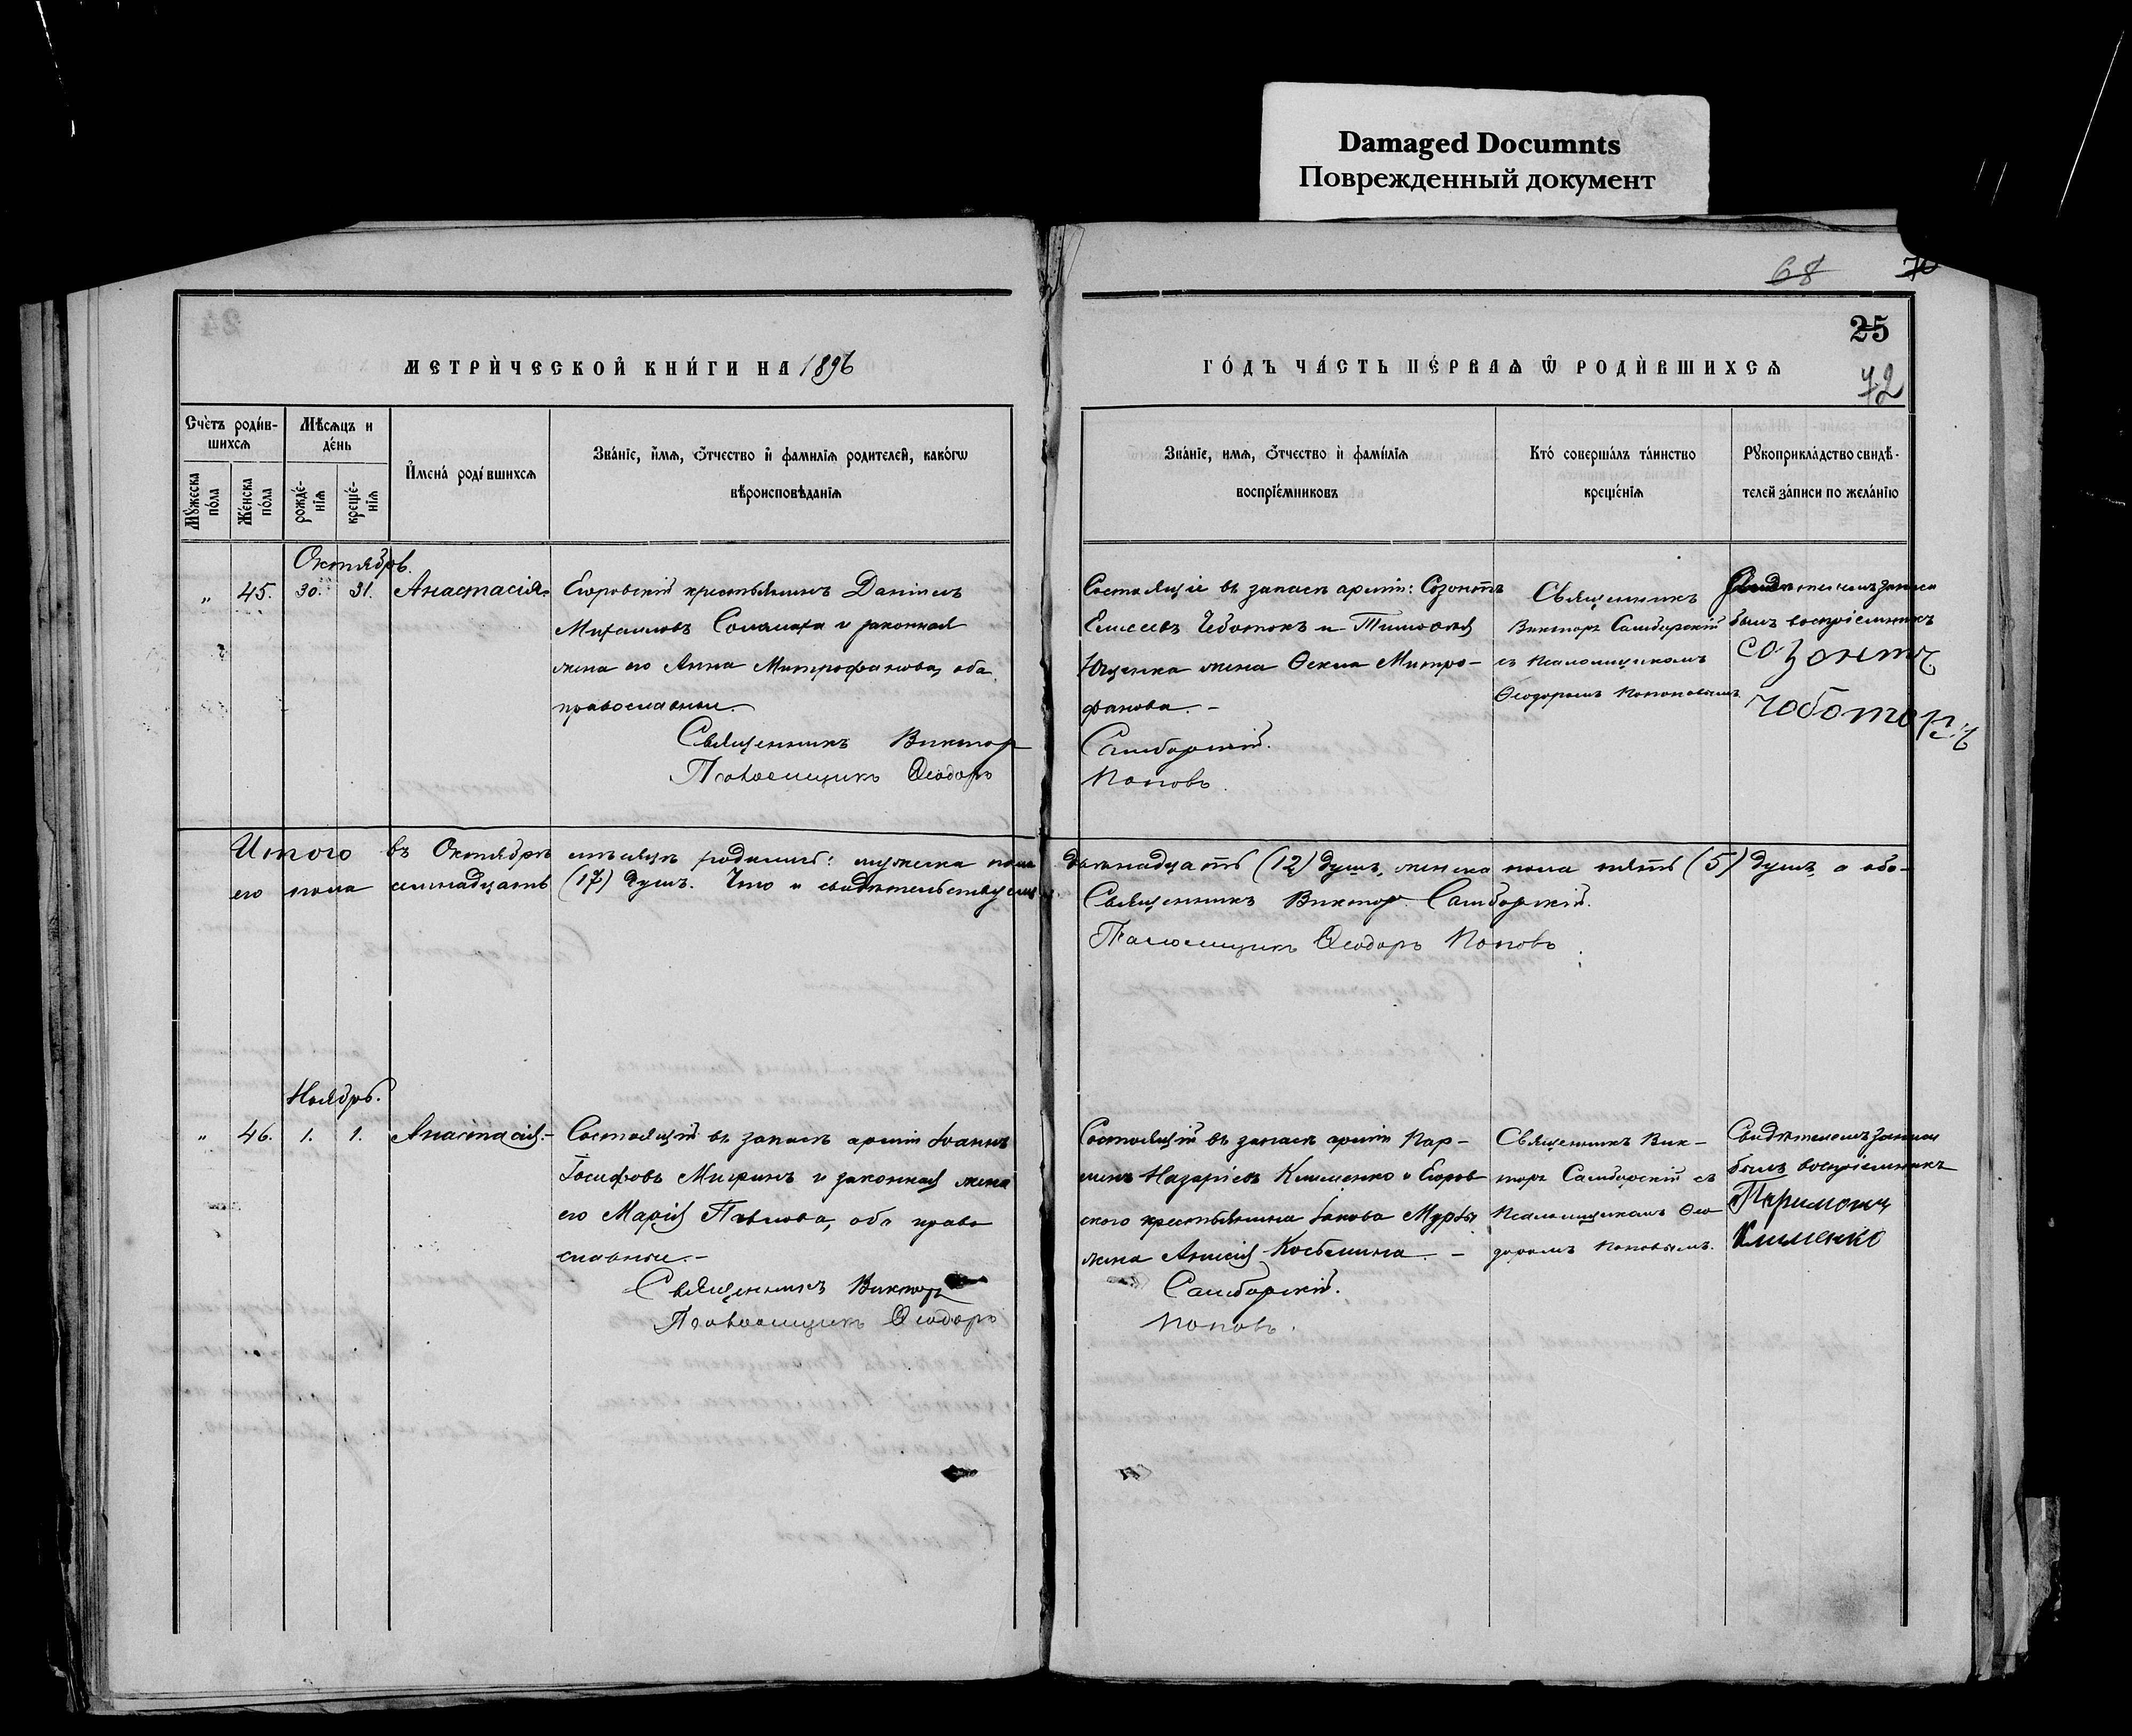 Damaged Documnts
Поврежденный документ
68 70
25
МЕТРИ́ЧЕСКОЙ КНИ́ГИ НА 1896
ГО́ДЪ ЧА́СТЬ ПЕ́РВАѦ Ѿ РОДИ́ВШИХСѦ
72
Сче́тъ роди́в-
шихсѧ
Мѣсѧцъ и
де́нь
Мꙋжеска
по́ла
Же́нска
по́ла
рожде́-
нїѧ
креще́-
нїѧ
И҆мена̀ роди́вшихсѧ
Зва́нїе, и҆́мѧ, ѻ҆́тчество и҆ фами́лїѧ родителей, како́гѡ
вѣроисповѣданїѧ
Зва́нїе, имѧ, ѻ҆́тчество и҆ фами́лїѧ
воспрїе́мниковъ
Кто́ соверша́лъ та́инство
креще́нїѧ
Рꙋкоприкла́дство свидѣ-
телей за́писи по жела́нїю
Октябрь.
„ 45. 30. 31. Анастасія.
Егоровскій крестьянинъ Даніилъ
Михаиловъ Соломаха и законная
жена его Анна Митрофанова, оба
православные.
Священникъ Виктор
Псаломщикъ Ѳеодоръ
Состоящіе въ запасѣ арміи: Созонтъ
Елисеевъ Чоботокъ и Тимоѳея
Ющенка жена Ѳекла Митро-
фанова. -
Самборскій.
Поповъ.
Священникъ
Викторъ Самборскій
съ Псаломщикомъ
Ѳеодоромъ Поповымъ
Свидѣтелемъ записи
былъ воспріемникъ
Созонтъ
Чоботокъ
Итого въ Октябрѣ мѣсяцѣ родилось: мужеска пола двѣнадцать (12) душъ, женска пола пять (5) душъ, а обо-
его пола семнадцать (17) душъ. Что и свидѣтельствуемъ:
Священникъ Виктор Самборскій.
Псаломщикъ Ѳеодоръ Поповъ
Ноябрь.
„ 46. 1. 1. Анастасія. -
Состоящій въ запасѣ арміи Іоаннъ
Іосифовъ и законная жена
его Марія Павлова, оба право
славные. -
Священникъ Виктор
Псаломщикъ Ѳеодоръ
Состоящій въ запасѣ арміи Пар-
менъ Назаріевъ Клименко и Егоров
ского крестьянина Іакова Мурвы
жена Анисія Косьмина. -
Самборскій.
Поповъ.
Священникъ Вик-
торъ Самборскій съ
Псаломщикомъ Ѳео
доромъ Поповымъ.
Свидѣтелемъ записи
былъ воспріемникъ
Клименко